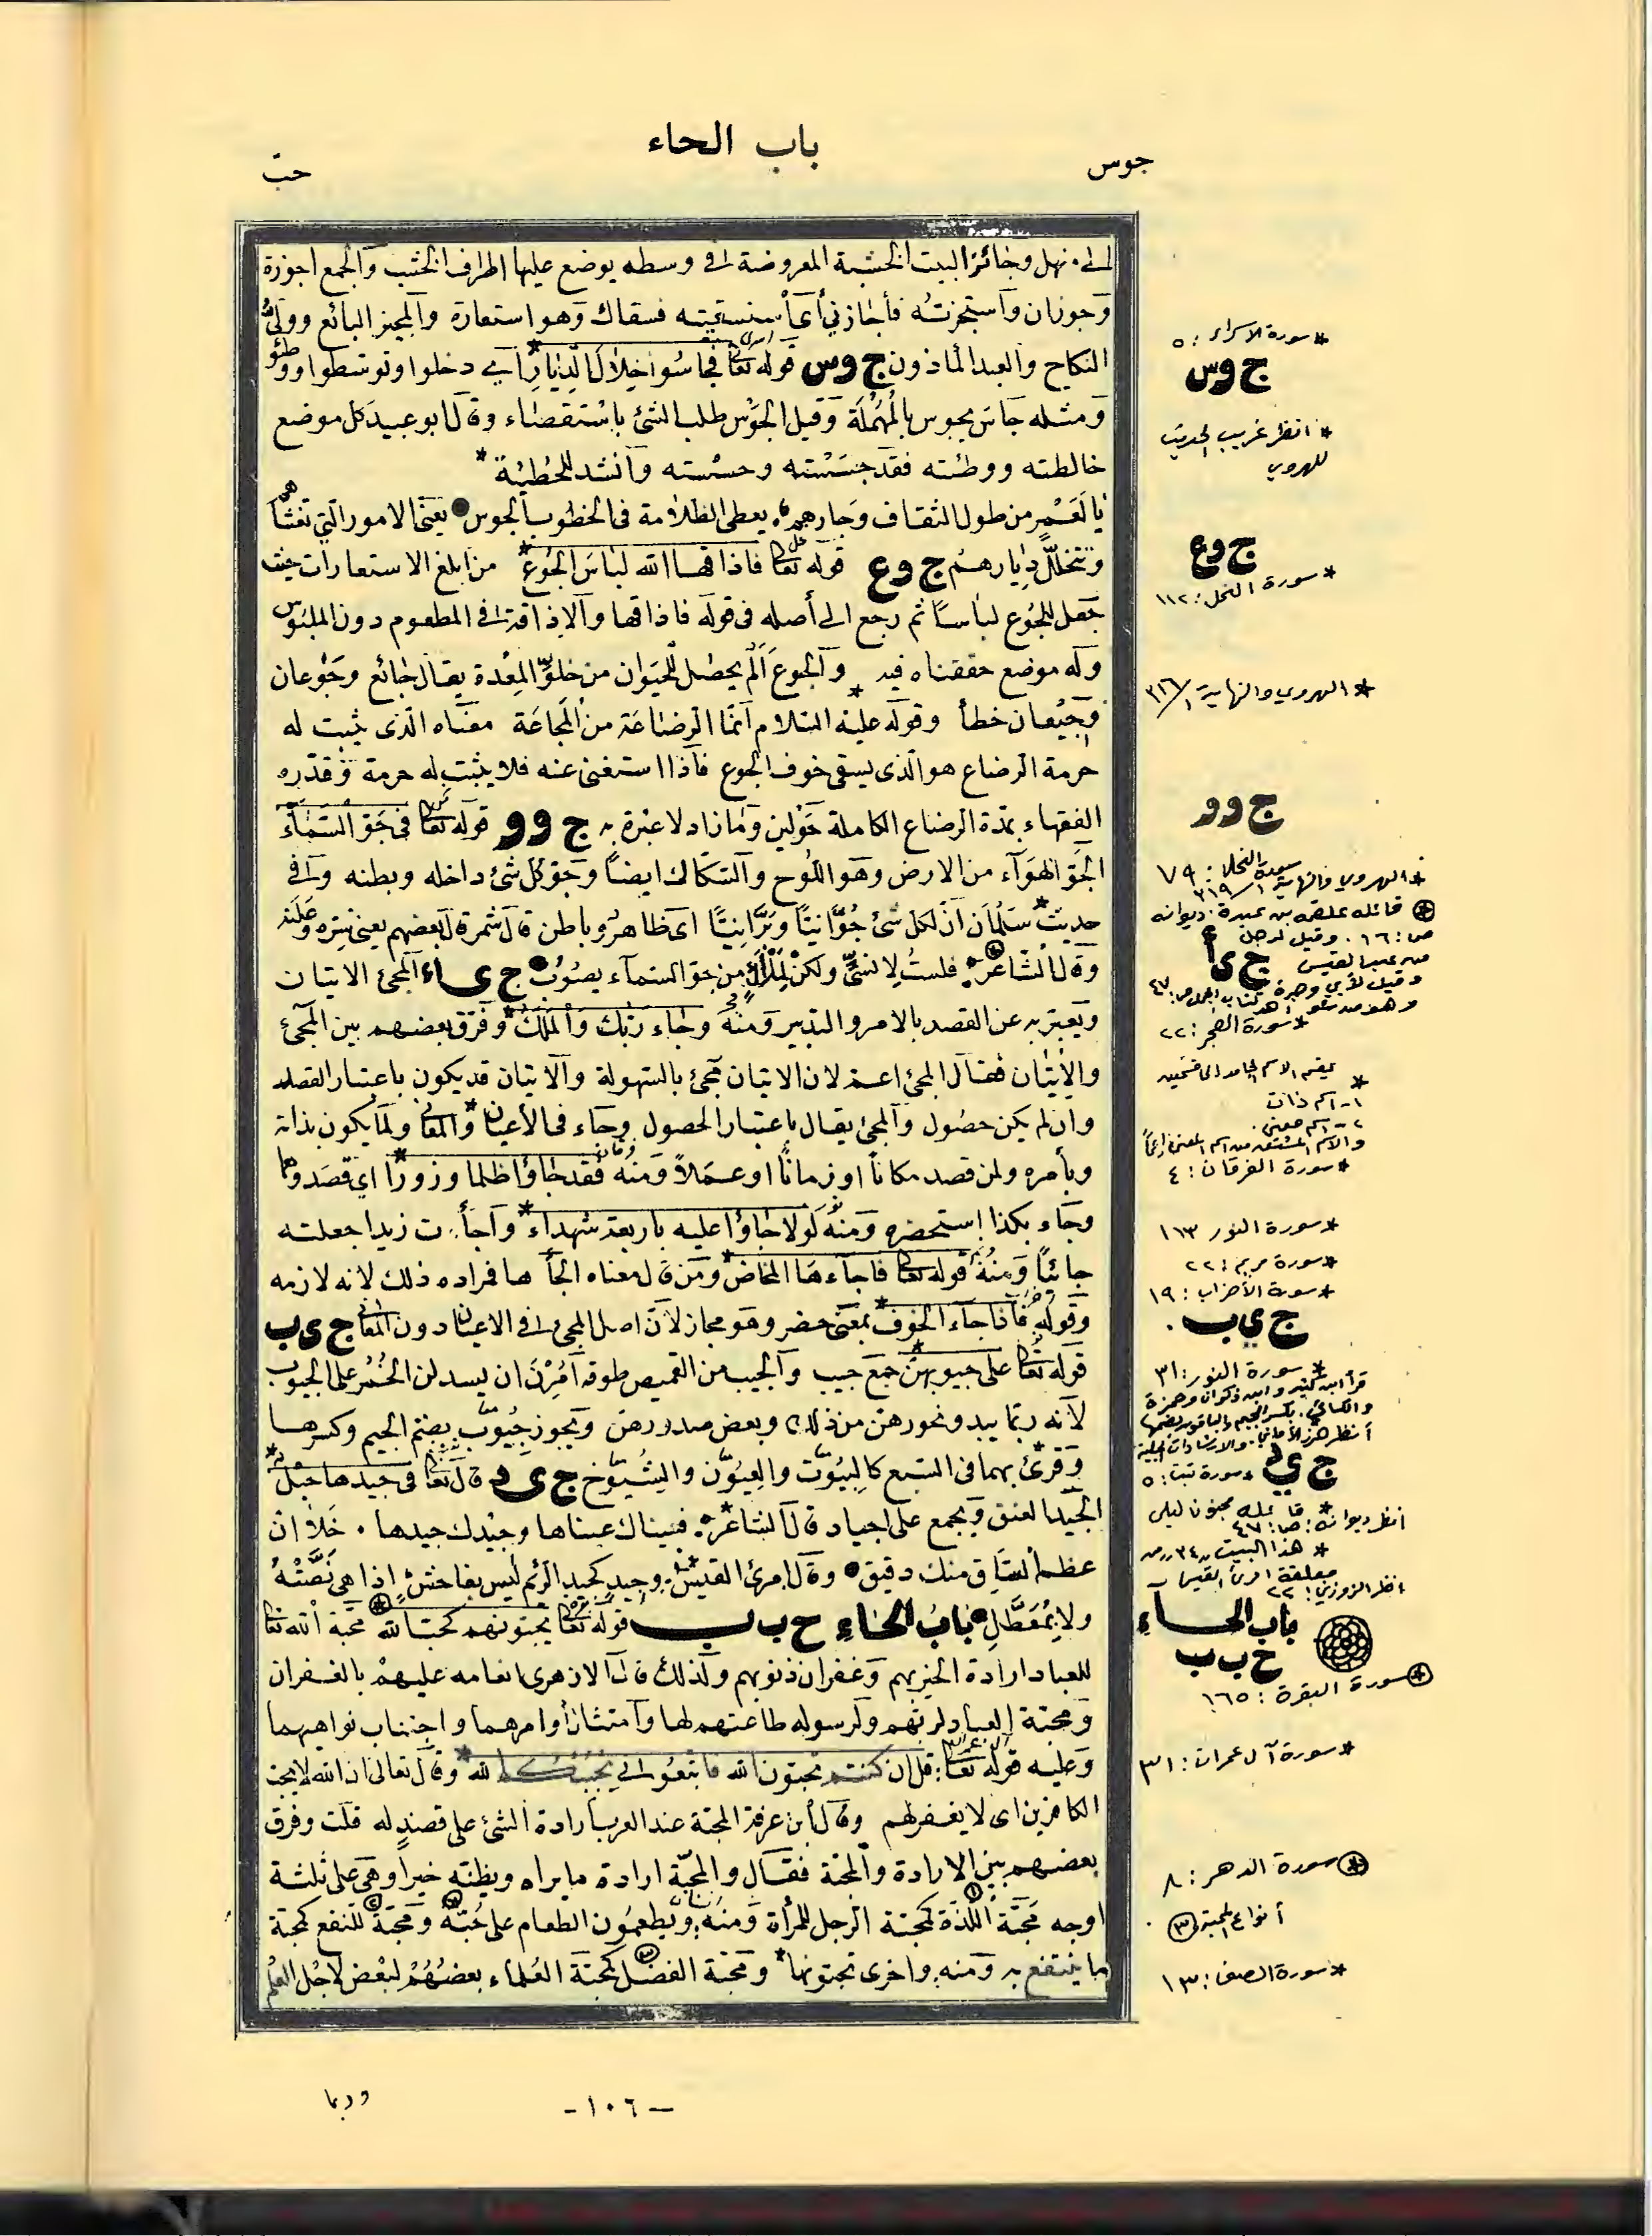 باب الحاء
جوس
حبّ
الى نهل وجائز البيت الخشبة المعروضة فى وسطه يوضع عليها اطراف الخشب والجمع اجوزة
وجوزان واستجزته فأجازني أي استسقيته فسقاك وهو استعارة والمجيز البائع وولىّ
النكاح والعبد المأذون ج وس قوله تعا فجاسُوا خِلالَ الدِّيارِ أي دخلوا وتوسّطوا ووطئو
ومثله جاسَ يجوس بالمُهمَلة وقيل الجَوْس طلب الشئ باسْتقصاء وقال ابو عبيد كل موضع
خالطته ووطئته فقد جسَسْته وحسْسته وانشد للحُطيئة *
يا لَعَمْرٍ من طول الثقاف وجارهم يعطى الظلامة فى الخطوب الجوس يعنى الامور التي تغشّاهم
وتتخلّل ديارهمْ ج وع قوله تعا فاذاقها الله لباسَ الجُوعِ * من ابلغ الاستعارات حيث
جعل للجُوع لباساً ثم رجع الى أصله فى قوله فاذاقها والاذاقة فى المطعوم دون الملبُوس
وله موضع حققناه فيه والجوعُ ألم يحصل للحيَوان من خلوّ المعْدة يقال جائع وجَوْعان
وجَيْعان خطأ وقوله عليه السلام انّما الرضاعَة من المَجاعَة معْناه الّذى يثبت له
حرمة الرضاع هو الّذى يسقى خوف الجوع فاذا استغنى عنه فلا يثبت له حرمة وقدّره
الفقهاء بمدة الرضاع الكاملة حَوْلين وما زاد لا عبْرة به ج وو قوله تعا فى جَوّ السَّمآء
الجَوّ الهوَآء من الارض وهو اللُوح والسّكاك ايضاً وجَوّ كل شئ داخله وبطنه وفى
حديث * سَلمَان انّ لكل شئ جُوّانيّاً وبَرّانيّاً اى ظاهرٌ وباطن قال شمرة قال بعضهم يعنى سِرّه وعَلَنه
وقال الشاعرُ فلستُ لإنسيٍّ ولكنْ لِمَلْأكٍ من جوّ السمآء يصُوبُ ج ى اء المجئ الاتيان
ويعبّر به عن القصد بالامر والتدبير ومنه وجاء ربّك والمَلَكُ * وفرّق بعضهم بين المجئ
والإتيان فقال المجئ اعم لان الاتيان مجئ بالسّهولة والاتيان قد يكون باعتبار القصد
وان لم يكن حصُول والمجئ يقال باعتبار الحصول وجاء فى الأعيان والمعانى ولما يكون بذاته
وبأمره ولمن قصد مكاناً او زماناً او عمَلاً ومنه فقد جاؤا ظلما وزوراً اي قصَدوهما
وجاء بكذا استحضره ومنه لولا جاؤا عليه باربعة شهداء * وأجأت زيدا جعلته
جائياً ومنْهُ قوله تعا فاجاءها المخاض * ومن قال معناه الجأها فمراده ذلك لانه لازمه
وقوله فاذا جاء الخوف * بمعْنى حضر وهو مجاز لأنّ اصل المجئ فى الاعيان دون المعانى ج ى ب
قوله تعا على جيوبهنّ * جمع جيب والجيب من القميص طوقه اُمِرْنَ ان يسدلن الخُمُر على الجيُوب
لأنه ربّما يبدو نحورهن من ذلك وبعض صدورهن ويجوز جُيُوب بضمّ الجيم وكسرها
وقرئ بهما فى السّبع كالبيُوت والعيُون والشيُوخ ج ى د قال تعا فى جيدها حبْل *
الجيد العنق ويجمع على اجياد قال الشاعر * فعيناك عيناها وجيْدك جيدها . خَلا ان
عظم السّاق منك دقيق وقال امرئ القيس * وجيدٍ كجيد الرّئم ليْس بفاحشٍ إذا هي نَصّتْهُ
ولا بمُعَطَّلِ بابُ الحَاءِ ح ب ب قوله تعا يحبّونهم كحُبّ الله محبّة الله تعا
للعباد ارادة الخير بهم وغفران ذنوبهم ولذلك قال الازهرى انعامه عليهمْ بالغفران
ومحبّة العباد لربّهم ولرسوله طاعتهم لهما وامتثال أوامرهما واجتناب نواهيهما
وعليه قوله تعا قل ان كنتم تحبّون الله فاتبعُونى يُحْبِبْكُمُ الله * وقال تعالى ان الله لا يحبّ
الكافرين اى لا يغفر لهم وقال ابن عرفة المحبّة عند العرب ارادة الشئ على قصدٍ له قلت وفرق
بعضهم بين الارادة والمحبّة فقال والمحبّة ارادة ما يراه ويظنّه خيراً وهي على ثلثة
اوجه محَبّة اللّذّة كمحبّة الرجل للمرأة ومنهُ ويُطعمُون الطعام على حُبّه ومحبّة للنفع كمحبّة
ما ينتفع به ومنه واخرى تحبّونها * ومحبّة الفضْل كمحبّة العُلماء بعضُهُمْ لبَعْض لاجْل العِلْم
* سورة الاسراء : ٥
ج وس
* انظر غريب الحديث
للهروي
ج وع
* سورة النحل : ١١٢
* الهروي والنهاية ١/٣١٦
ج وو
سورة النحل : ٧٩
* الهروي والنهاية ١/٣١٩
* قائله علقمة بن عبدة . ديوانه
ص : ١٦ . وقيل لرجل
من عبد القيس
ج ي أ
* سورة الفجر : ٢٢
* يقسم الاسم الجامد الى قسمين
١ - اسم ذات
٢ - اسم معنى .
* سورة الفرقان : ٤
* سورة النور ١٣
* سورة مريم : ٢٢
* سورة الأحزاب : ١٩
ج ي ب .
* سورة النور : ٣١
قرأ ابن كثير وابن ذكوان وحمزة
والكسائي . بكسر الجيم والباقون بضمها
ج ي د * سورة تبت : ٥
* قائله مجنون ليلى
انظر ديوانه : ص :
* هذا البيت ٣٤ من
معلقة امرئ القيس
انظر الزوزني : ٢٢
باب الحاءِ
ح ب ب
* سورة البقرة : ١٦٥
* سورة آل عمران : ٣١
* سورة الدهر : ٨
أنواع المحبة (٣) .
* سورة الصف : ١٣
وربما
- ١٠٦ -